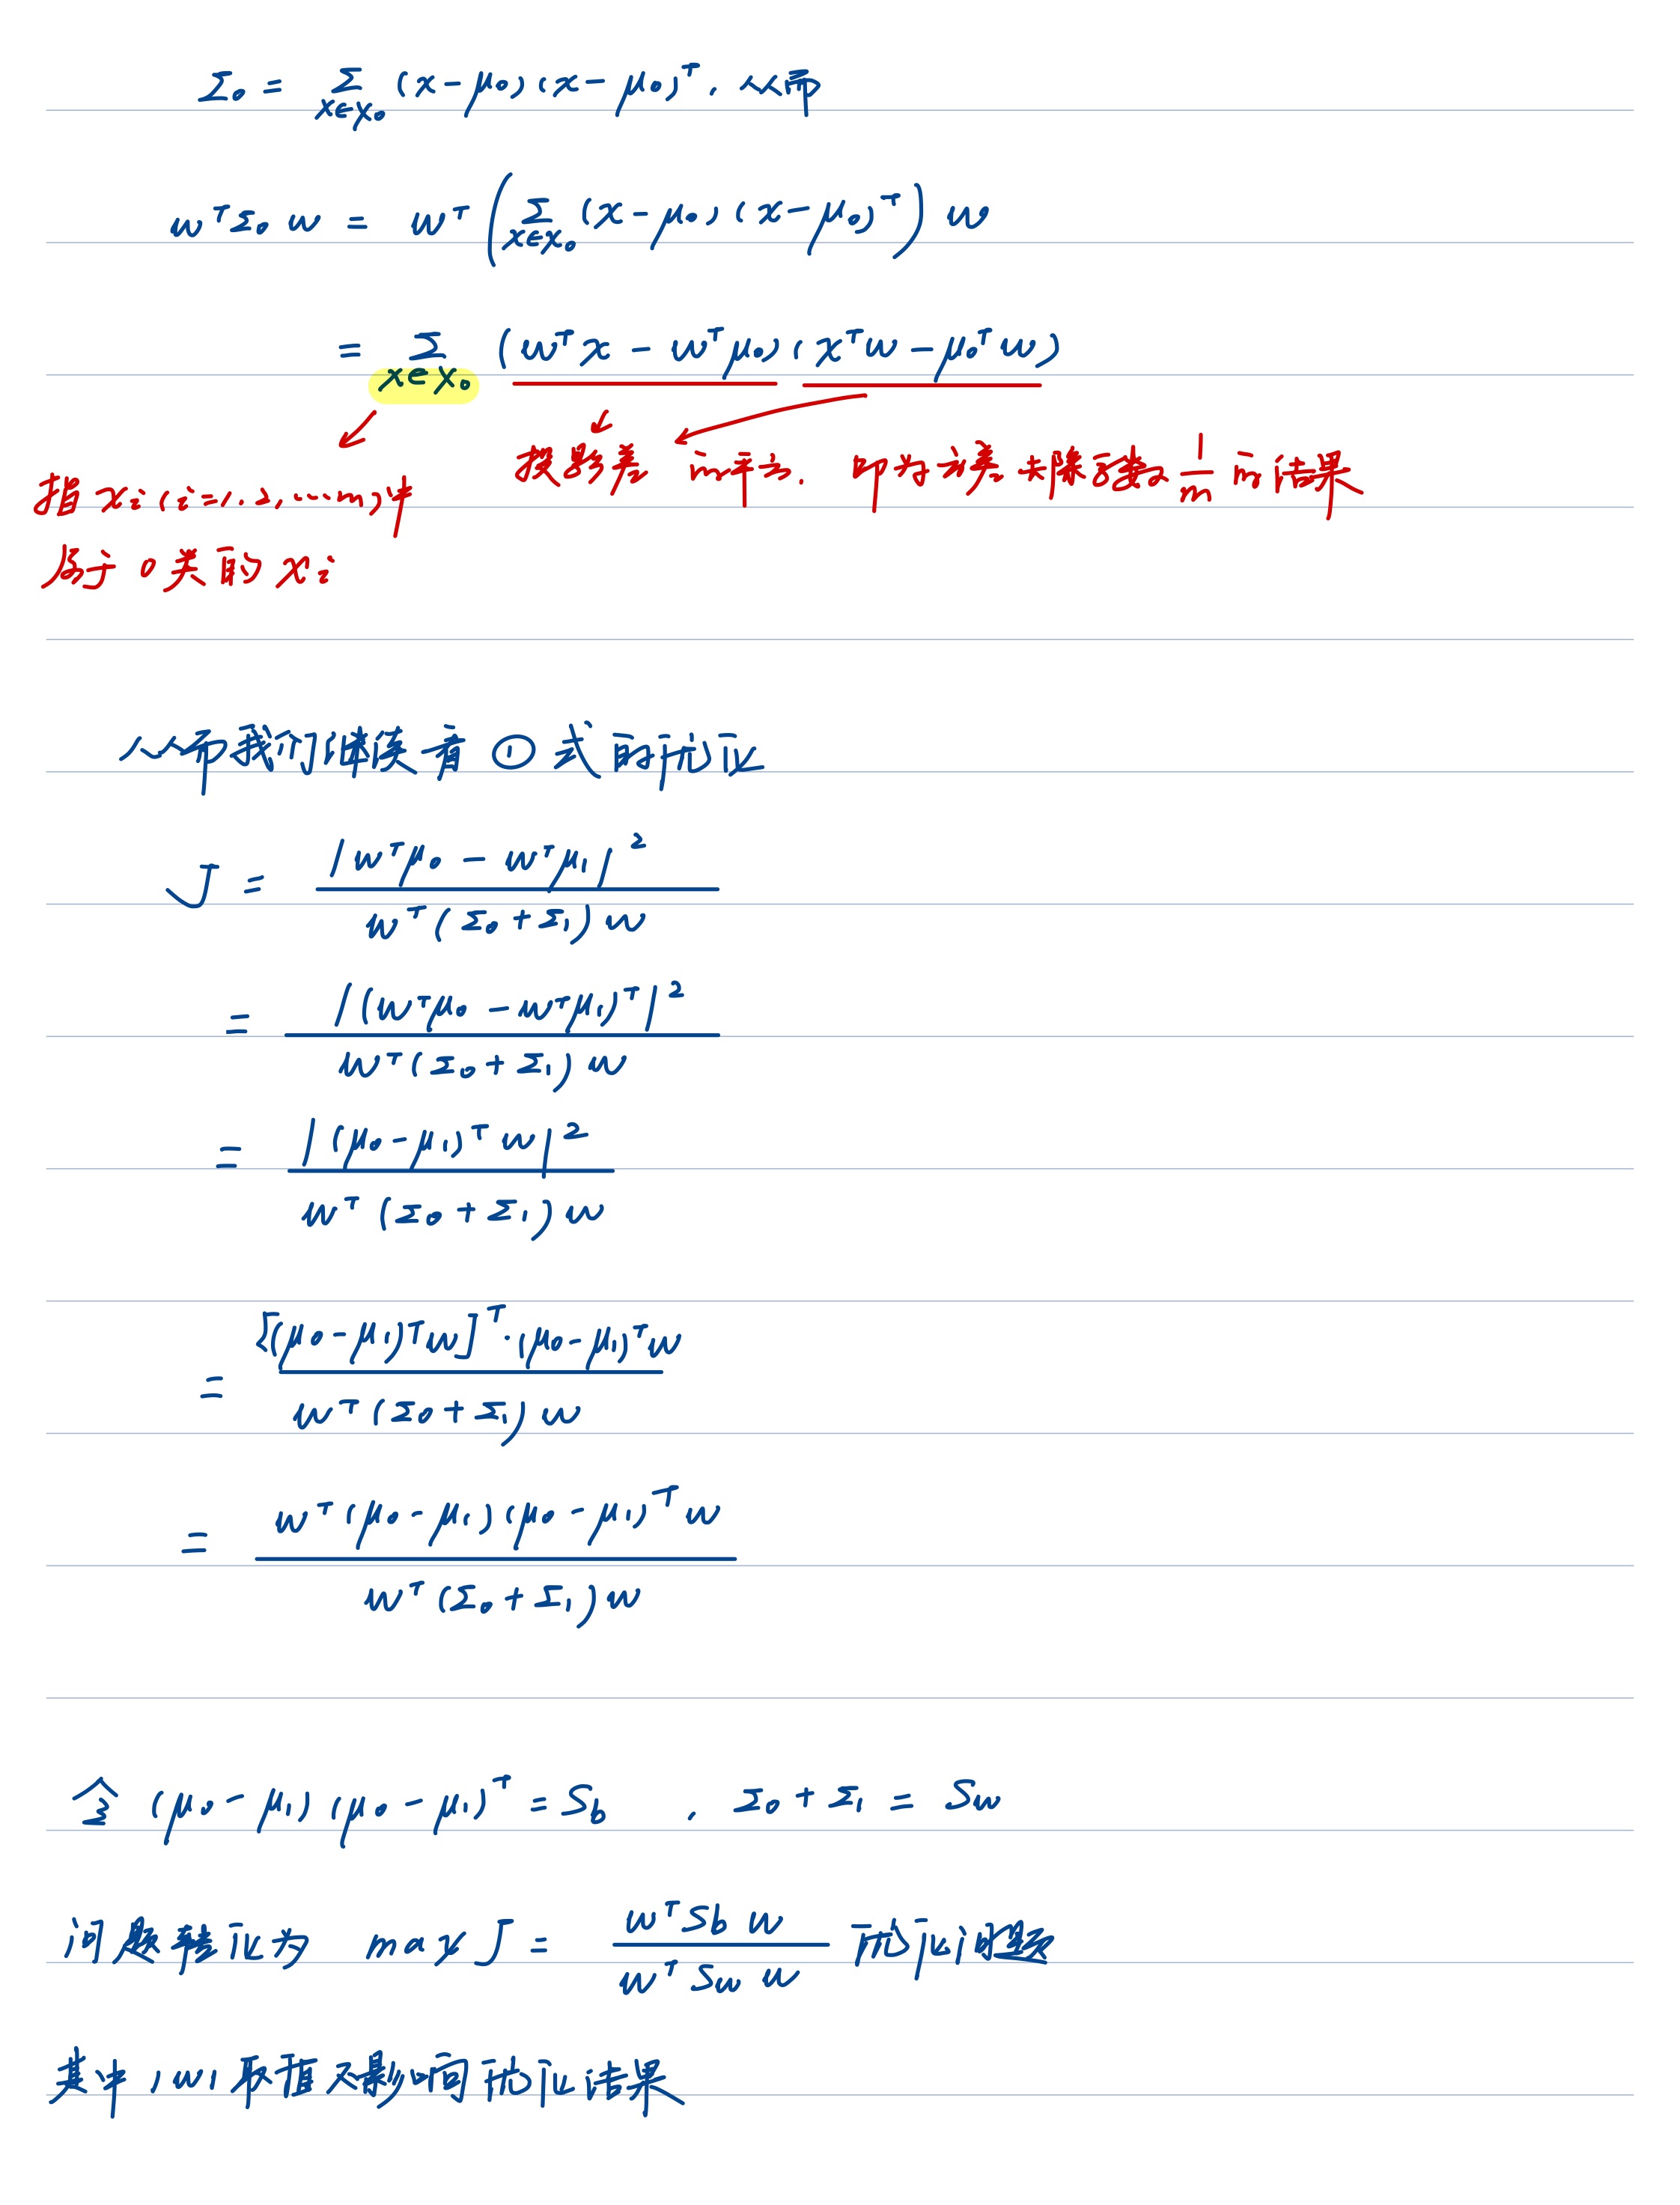 Σ₀ = Σ_{x∈X₀} (x-μ₀)(x-μ₀)ᵀ, 从而
wᵀΣ₀w = wᵀ(Σ_{x∈X₀} (x-μ₀)(x-μ₀)ᵀ)w
= Σ_{x∈X₀} (wᵀx - wᵀμ₀)(xᵀw - μ₀ᵀw)
投影差 的平方. 即为方差去除系数 1/m 的结果
指 xᵢ(i=1,2,……m)中
属于0类的 xᵢ
从而我们继续看 ① 式的优化
J = |wᵀμ₀ - wᵀμ₁|² / wᵀ(Σ₀+Σ₁)w
= |(wᵀμ₀ - wᵀμ₁)ᵀ|² / wᵀ(Σ₀+Σ₁)w
= |(μ₀-μ₁)ᵀw|² / wᵀ(Σ₀+Σ₁)w
= [(μ₀-μ₁)ᵀw]ᵀ·(μ₀-μ₁)ᵀw / wᵀ(Σ₀+Σ₁)w
= wᵀ(μ₀-μ₁)(μ₀-μ₁)ᵀw / wᵀ(Σ₀+Σ₁)w
令 (μ₀-μ₁)(μ₀-μ₁)ᵀ = S_b , Σ₀+Σ₁ = S_w
问题转化为 max J = wᵀS_b w / wᵀS_w w 优化问题
其中 |w| 取值不影响优化结果